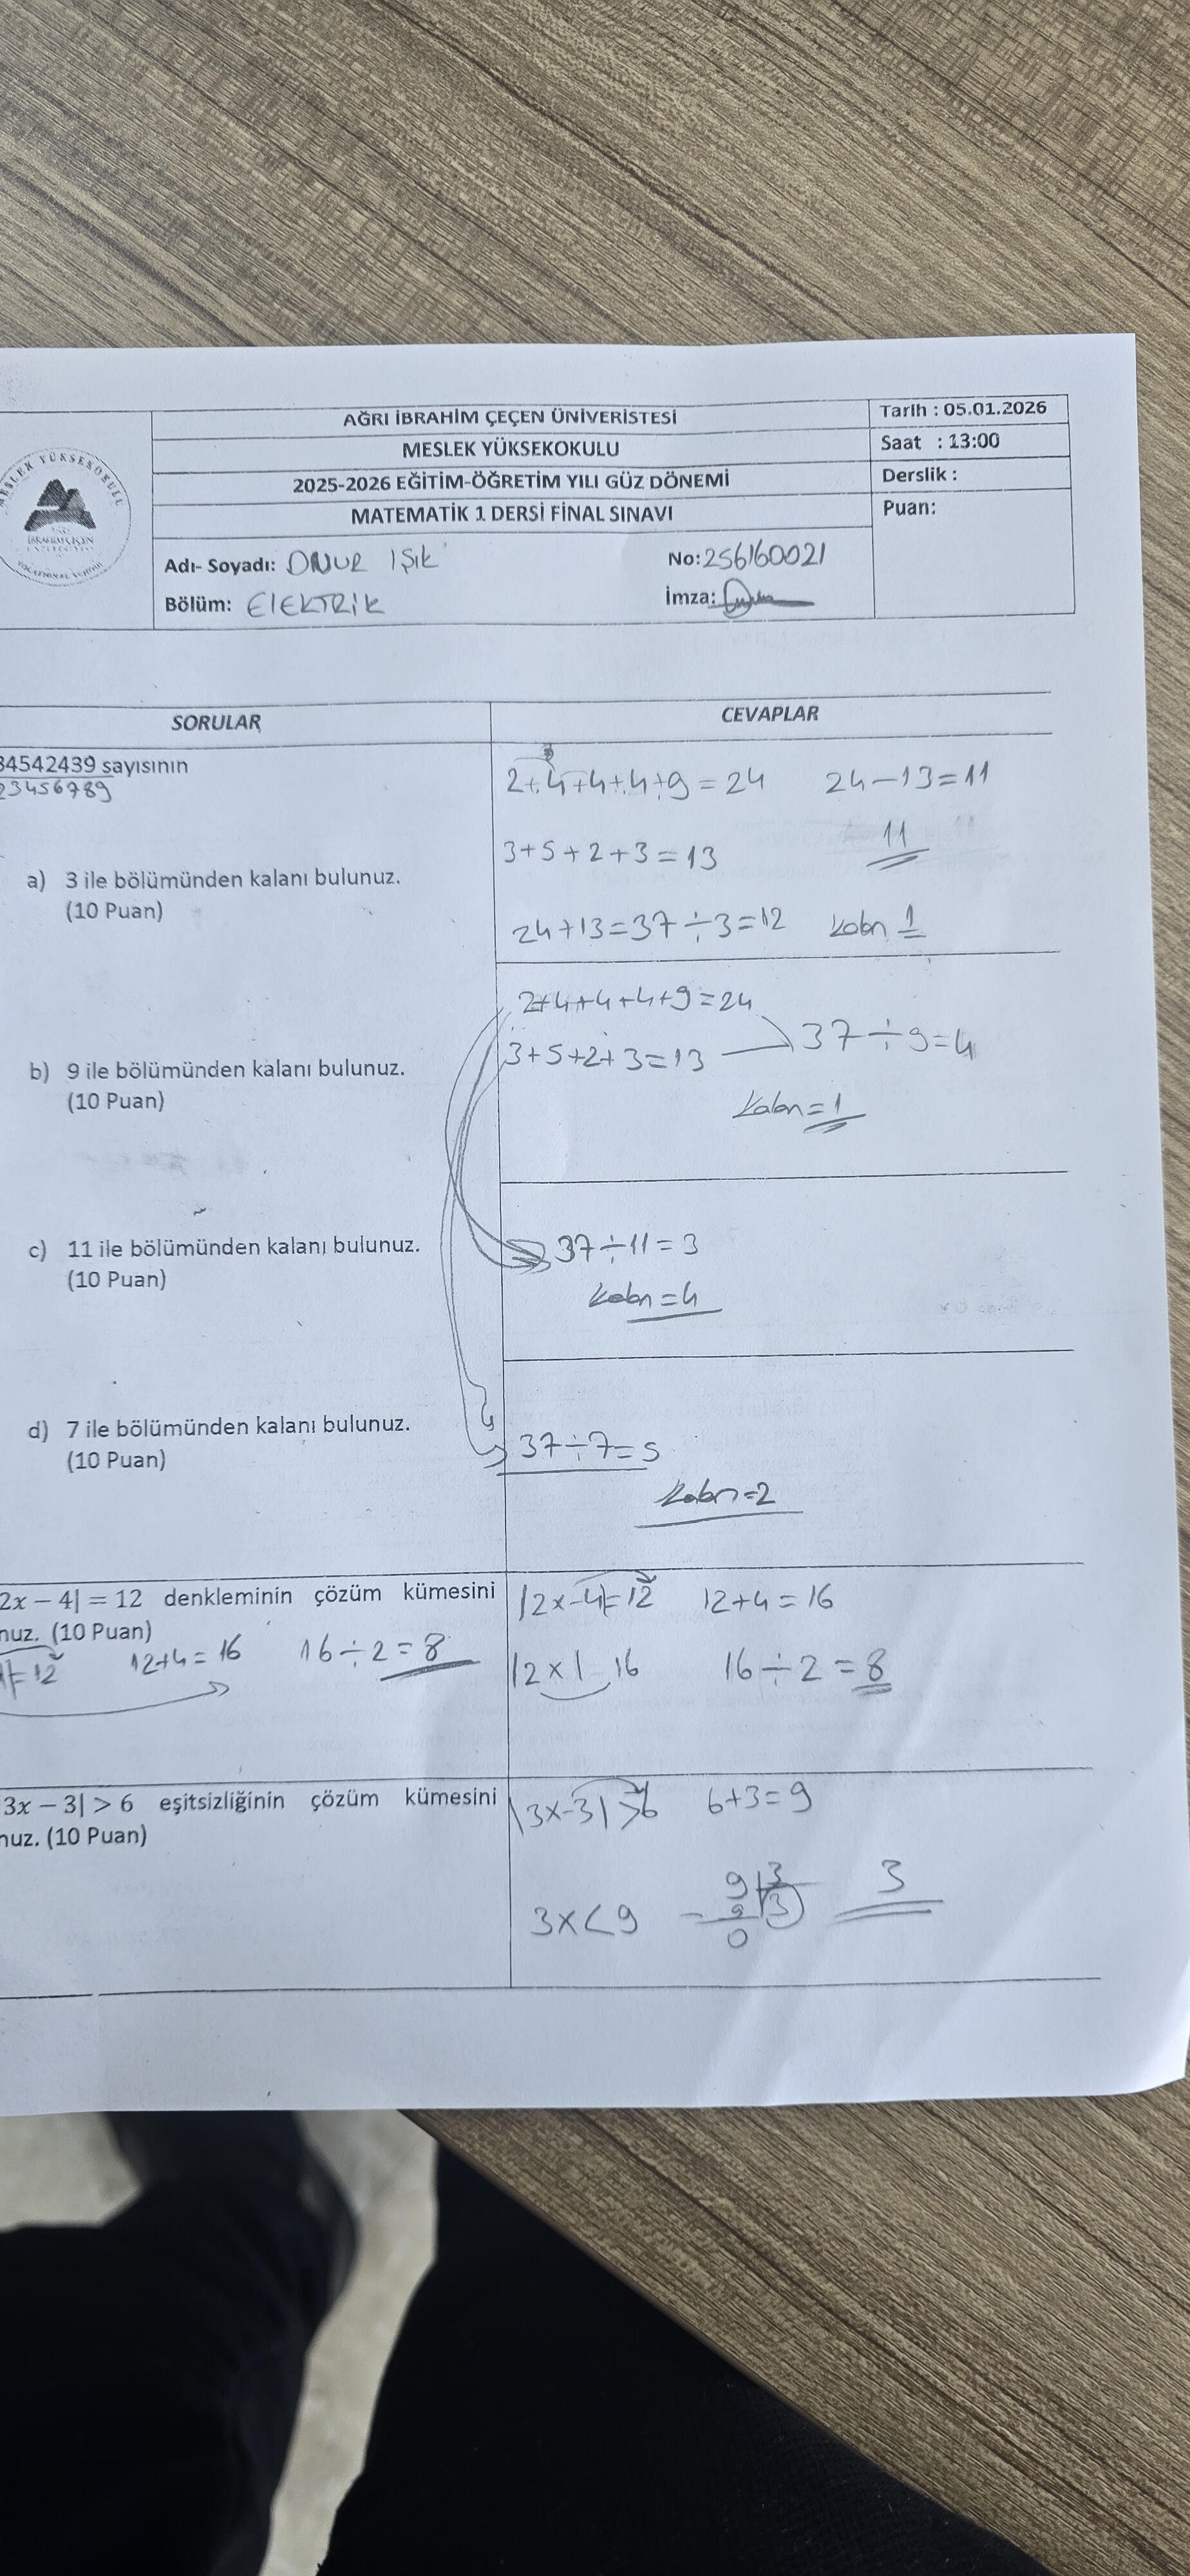 AĞRI İBRAHİM ÇEÇEN ÜNİVERİSTESİ
MESLEK YÜKSEKOKULU
2025-2026 EĞİTİM-ÖĞRETİM YILI GÜZ DÖNEMİ
MATEMATİK 1 DERSİ FİNAL SINAVI
Tarih : 05.01.2026
Saat : 13:00
Derslik :
Puan:
Adı- Soyadı: ONUR IŞIK
No: 256160021
Bölüm: ElEKTRİK
İmza:
SORULAR
CEVAPLAR
34542439 sayısının
23456789
2+4+4+4+9=24 24-13=11
3+5+2+3=13 11
a) 3 ile bölümünden kalanı bulunuz.
(10 Puan)
24+13=37÷3=12 kalan 1
2+4+4+4+9=24
3+5+2+3=13 37÷9=4
kalan=1
b) 9 ile bölümünden kalanı bulunuz.
(10 Puan)
c) 11 ile bölümünden kalanı bulunuz.
(10 Puan)
37÷11=3
kalan=4
d) 7 ile bölümünden kalanı bulunuz.
(10 Puan)
37÷7=5
kalan=2
2x − 4| = 12 denkleminin çözüm kümesini
nuz. (10 Puan)
=12 12+4=16 16÷2=8
|2x-4|=12 12+4=16
|2x| 16 16÷2=8
3x − 3| > 6 eşitsizliğinin çözüm kümesini
nuz. (10 Puan)
|3x-3|>6 6+3=9
3x<9 9 3 3
- 9 3
0